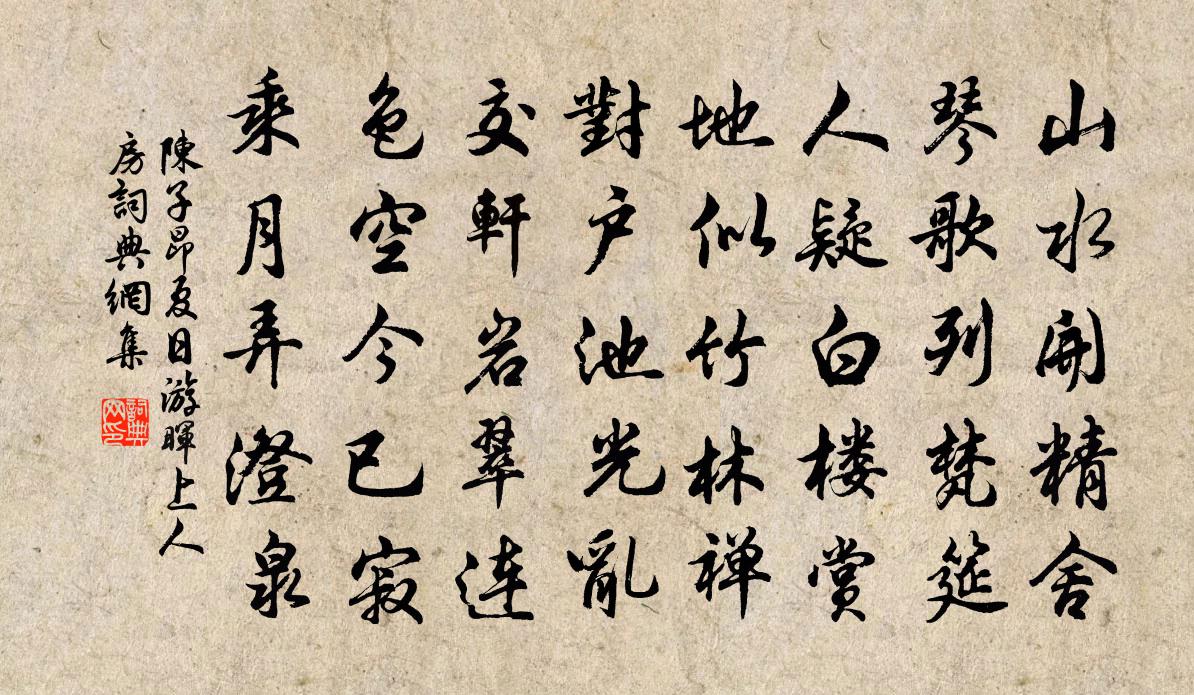 山水開精舍
琴歌列梵筵
人疑白楼賞
地似竹林禅
對户池光亂
交軒岩翠連
色空今已寂
乘月弄澄泉
陳子昂夏日游暉上人
房詞典網集
詞典网印